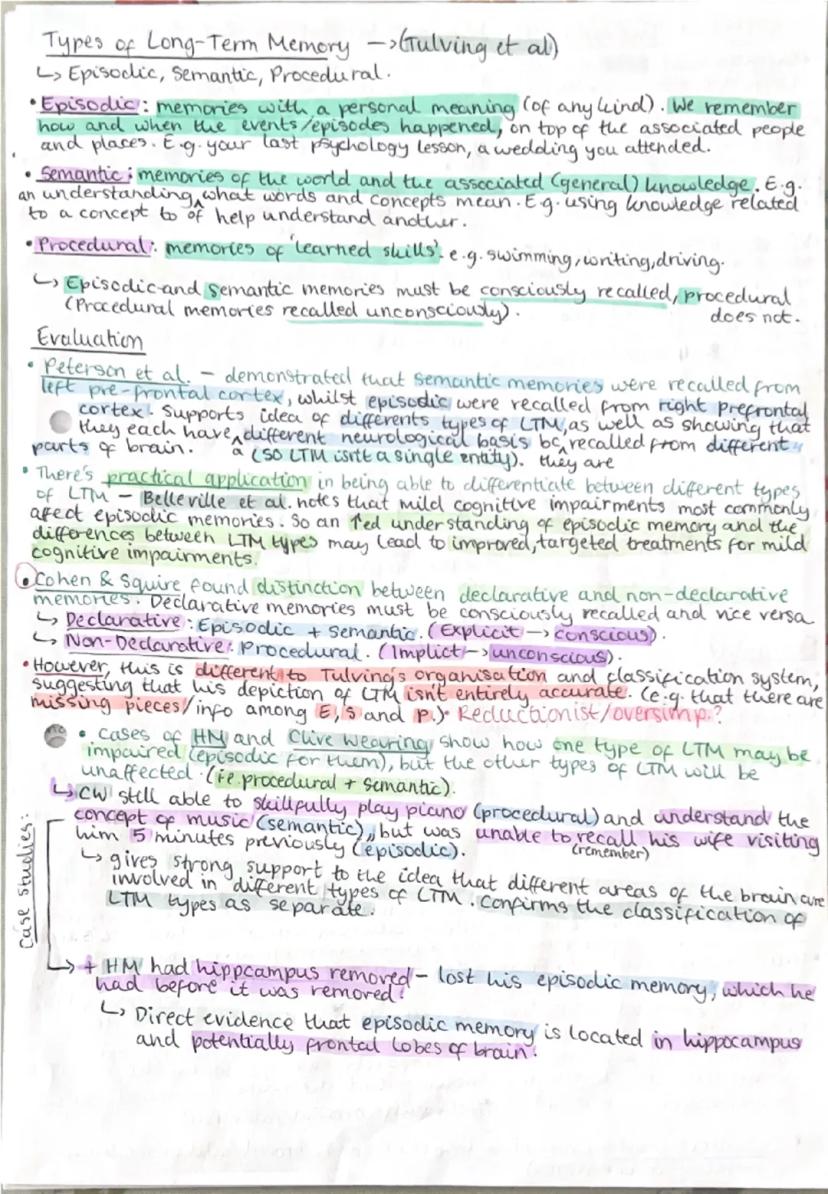 Types of Long-Term Memory → (Tulving et al)
↳ Episodic, Semantic, Procedural.
• Episodic: memories with a personal meaning (of any kind). We remember
how and when the events/episodes happened, on top of the associated people
and places. E.g. your last psychology lesson, a wedding you attended.
• Semantic: memories of the world and the associated (general) knowledge. E.g.
an understanding of what words and concepts mean. E.g. using knowledge related
to a concept to help understand another.
• Procedural: memories of 'learned skills'. e.g. swimming, writing, driving.
↳ Episodic and semantic memories must be consciously recalled, procedural
does not.
(Procedural memories recalled unconsciously).
Evaluation
• Peterson et al. - demonstrated that semantic memories were recalled from
left pre-frontal cortex, whilst episodic were recalled from right prefrontal
cortex. Supports idea of differents types of LTM, as well as showing that
they each have a different neurological basis bc they are recalled from different
parts of brain. (so LTM isn't a single entity).
• There's practical application in being able to differentiate between different types
of LTM - Belleville et al. notes that mild cognitive impairments most commonly
afect episodic memories. So an ↑ed understanding of episodic memory and the
differences between LTM types may lead to improved, targeted treatments for mild
cognitive impairments.
• Cohen & Squire found distinction between declarative and non-declarative
memories. Declarative memories must be consciously recalled and vice versa
↳ Declarative: Episodic + semantic. (Explicit → conscious).
↳ Non-Declarative: Procedural. (Implict → unconscious).
• However, this is different to Tulving's organisation and classification system,
suggesting that his depiction of LTM isn't entirely accurate. (e.g. that there are
missing pieces/info among E, S and P.) Reductionist/oversimp.?
• cases of HM and Clive Wearing show how one type of LTM may be
impaired (episodic for them), but the other types of LTM will be
unaffected. (i.e procedural + semantic).
Case Studies:
↳ CW still able to skillfully play piano (procedural) and understand the
concept of music (semantic), but was unable to recall his wife visiting
(remember)
him 5 minutes previously (episodic).
↳ gives strong support to the idea that different areas of the brain are
involved in different types of LTM. Confirms the classification of
LTM types as separate.
→ + HM had hippcampus removed - lost his episodic memory, which he
had before it was removed!
↳ Direct evidence that episodic memory is located in hippocampus
and potentially frontal lobes of brain.